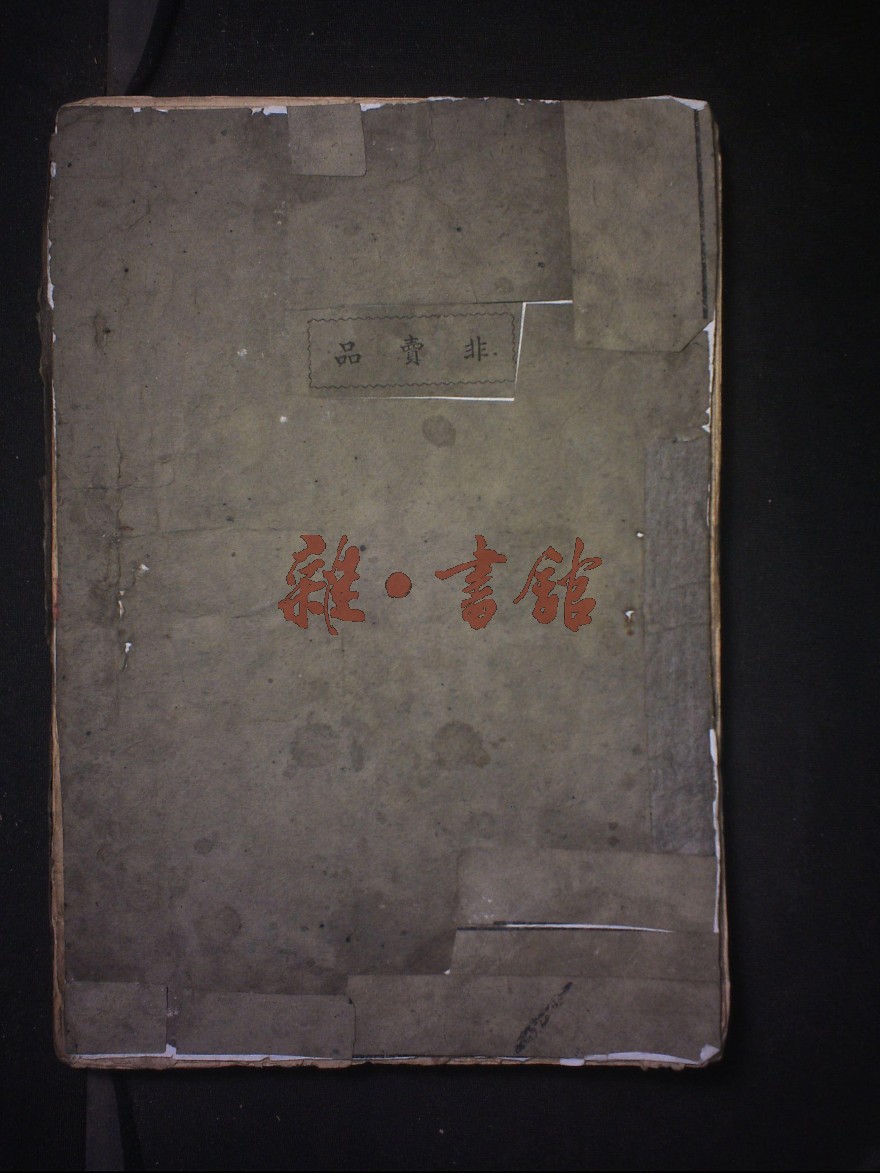 非賣品
雜·書館